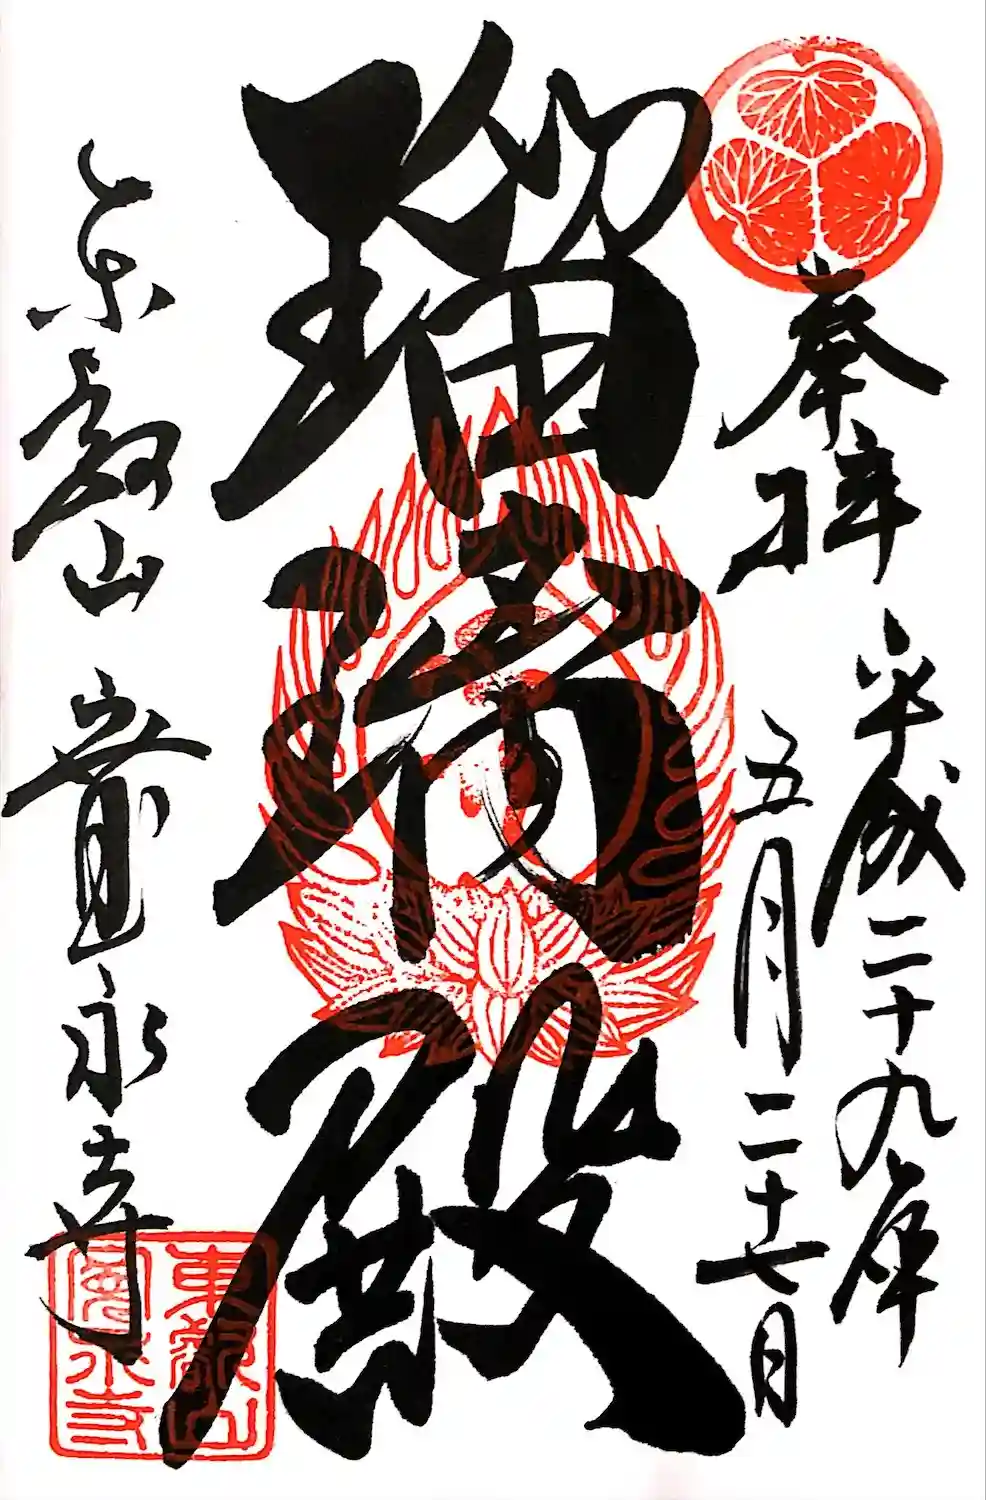 奉拝
平成二十九年
五月二十七日
瑠璃殿
東叡山 寛永寺
東叡山
寛永寺